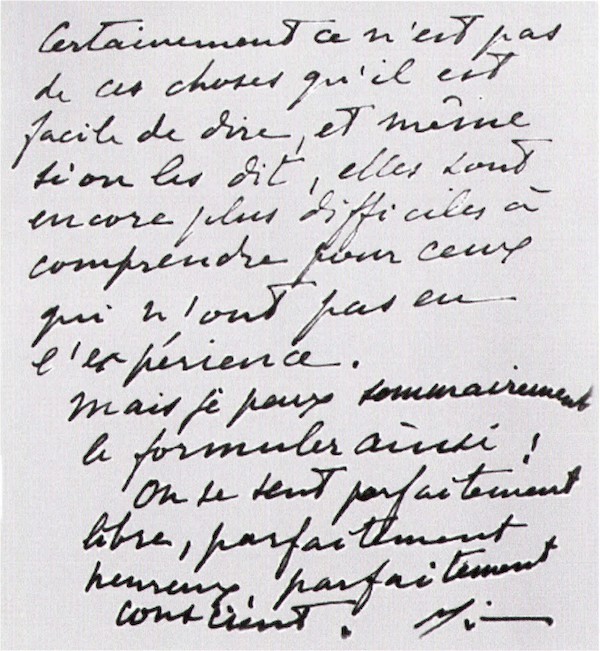 Certainement ce n'est pas
de ces choses qu'il est
facile de dire, et même
si on les dit, elles sont
encore plus difficiles à
comprendre pour ceux
qui n'ont pas eu
l'expérience.
Mais je peux sommairement
le formuler ainsi :
On se sent parfaitement
libre, parfaitement
heureux, parfaitement
conscient.